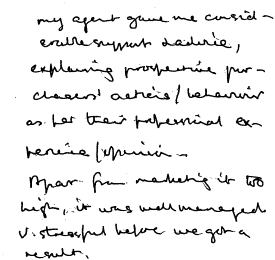 my agent gave me consid-
erable support & advice,
explaining prospective pur-
chasers' actions/behaviour
as per their professional ex-
perience/opinion.
Apart from marketing it too
high, it was well managed
v. stressful before we got a
result.